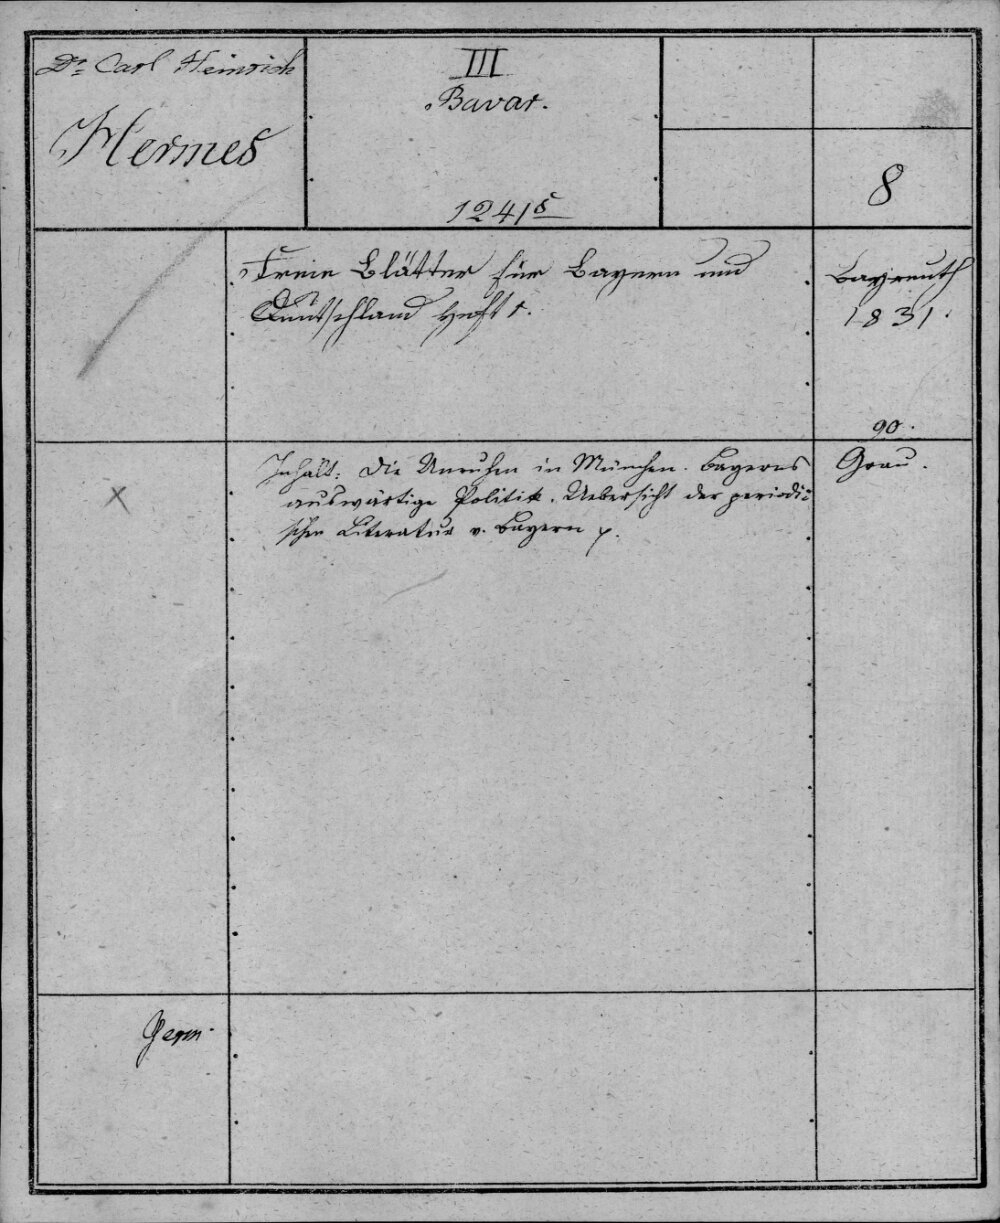 Dr Carl Heinrich
Hermes
III
Bavar.
1241 s
8
Freie Blätter für Bayern und
Deutschland Heft 1.
Bayreuth
1831.
90.
Inhalt: Die Unruhen in München. Bayerns
auswärtige Politik. Uebersicht der periodi-
schen Literatur v. Bayern
Grau.
x
Germ.